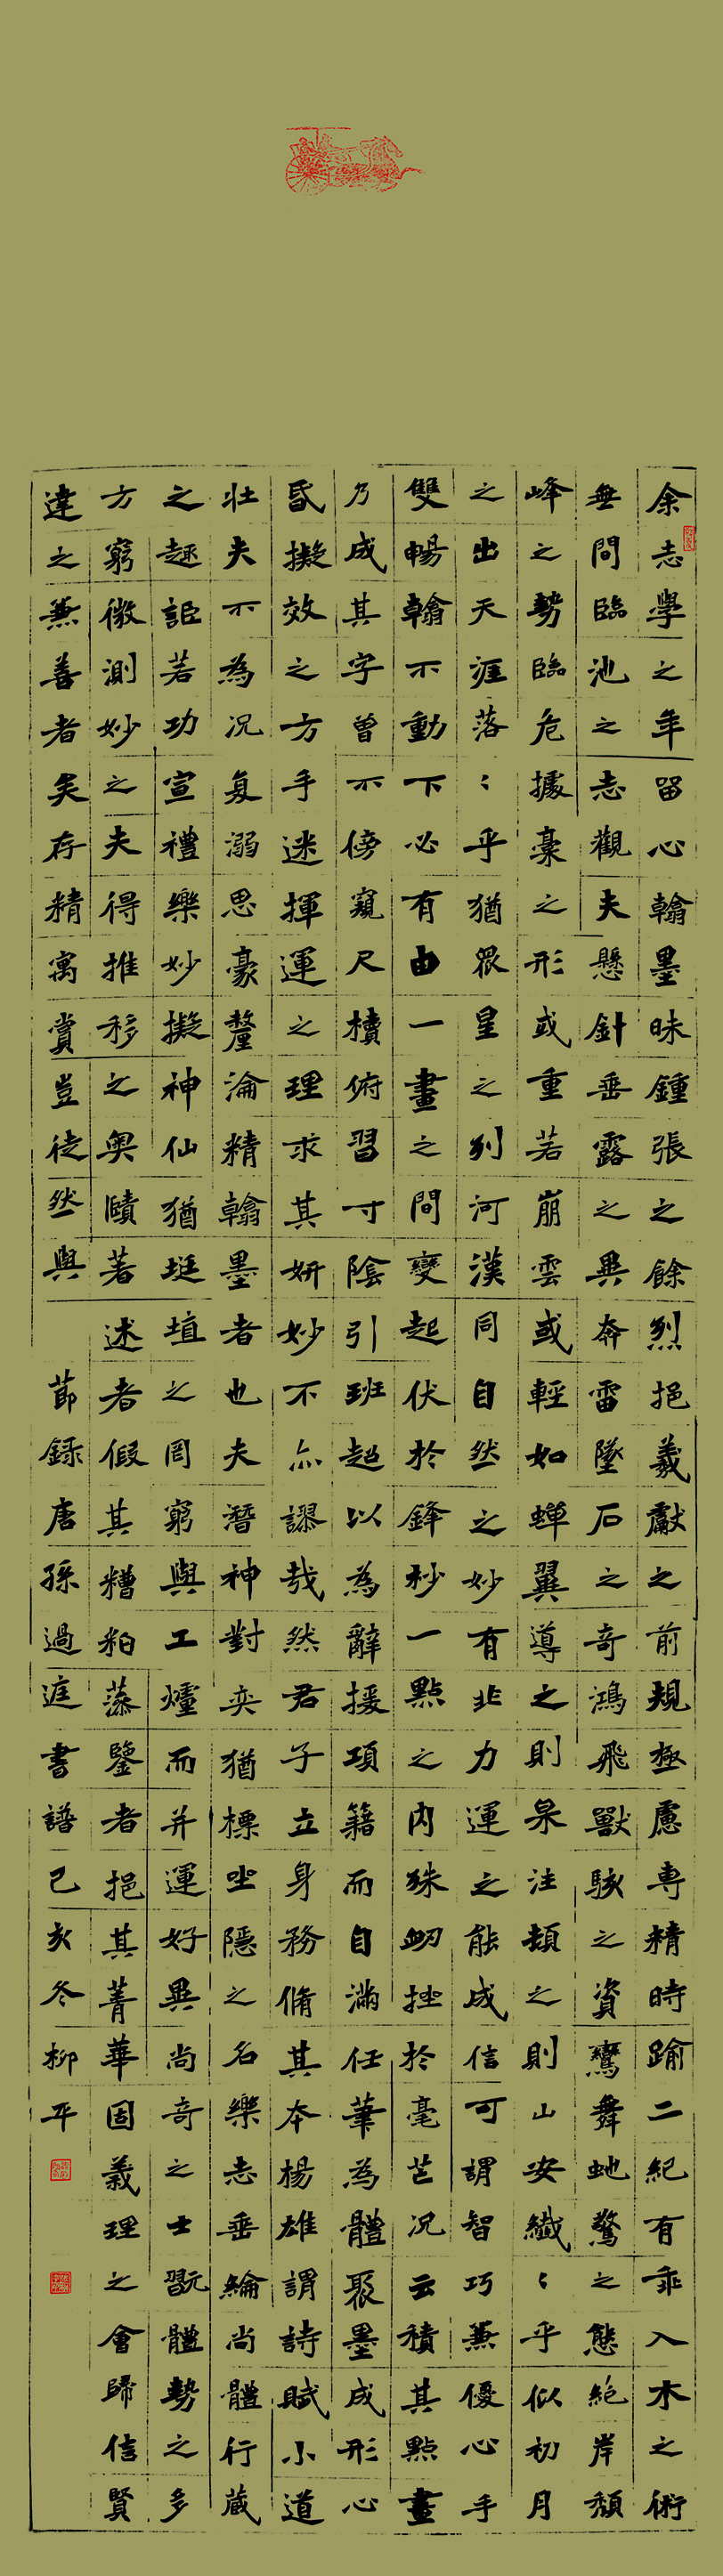 余志學之年留心翰墨味鍾張之餘烈挹羲獻之前規極慮專精時踰二紀有乖入木之術
無間臨池之志觀夫懸針垂露之異奔雷墜石之奇鴻飛獸駭之資鸞舞蛇驚之態絕岸頹
峰之勢臨危據槀之形或重若崩雲或輕如蟬翼導之則泉注頓之則山安纖〻乎似初月
之出天涯落〻乎猶眾星之列河漢同自然之妙有非力運之能成信可謂智巧兼優心手
雙暢翰不動下必有由一畫之間變起伏於鋒杪一點之內殊衂挫於毫芒況云積其點畫
乃成其字曾不傍窺尺櫝俯習寸陰引班超以為辭援項籍而自滿任筆為體聚墨成形心
昏擬效之方手迷揮運之理求其妍妙不亦謬哉然君子立身務脩其本楊雄謂詩賦小道
壯夫不為况复溺思豪釐淪精翰墨者也夫潛神對奕猶標坐隱之名樂志垂綸尚體行蔵
之趣詎若功宣禮樂妙擬神仙猶埏埴之罔窮與工爐而并運好異尚奇之士翫體勢之多
方窮微測妙之夫得推移之奥賾著述者假其糟粕藻鑒者挹其菁華固義理之會歸信賢
達之兼善者矣存精寓賞豈徒然與 節録唐孫過庭書譜己亥冬柳平